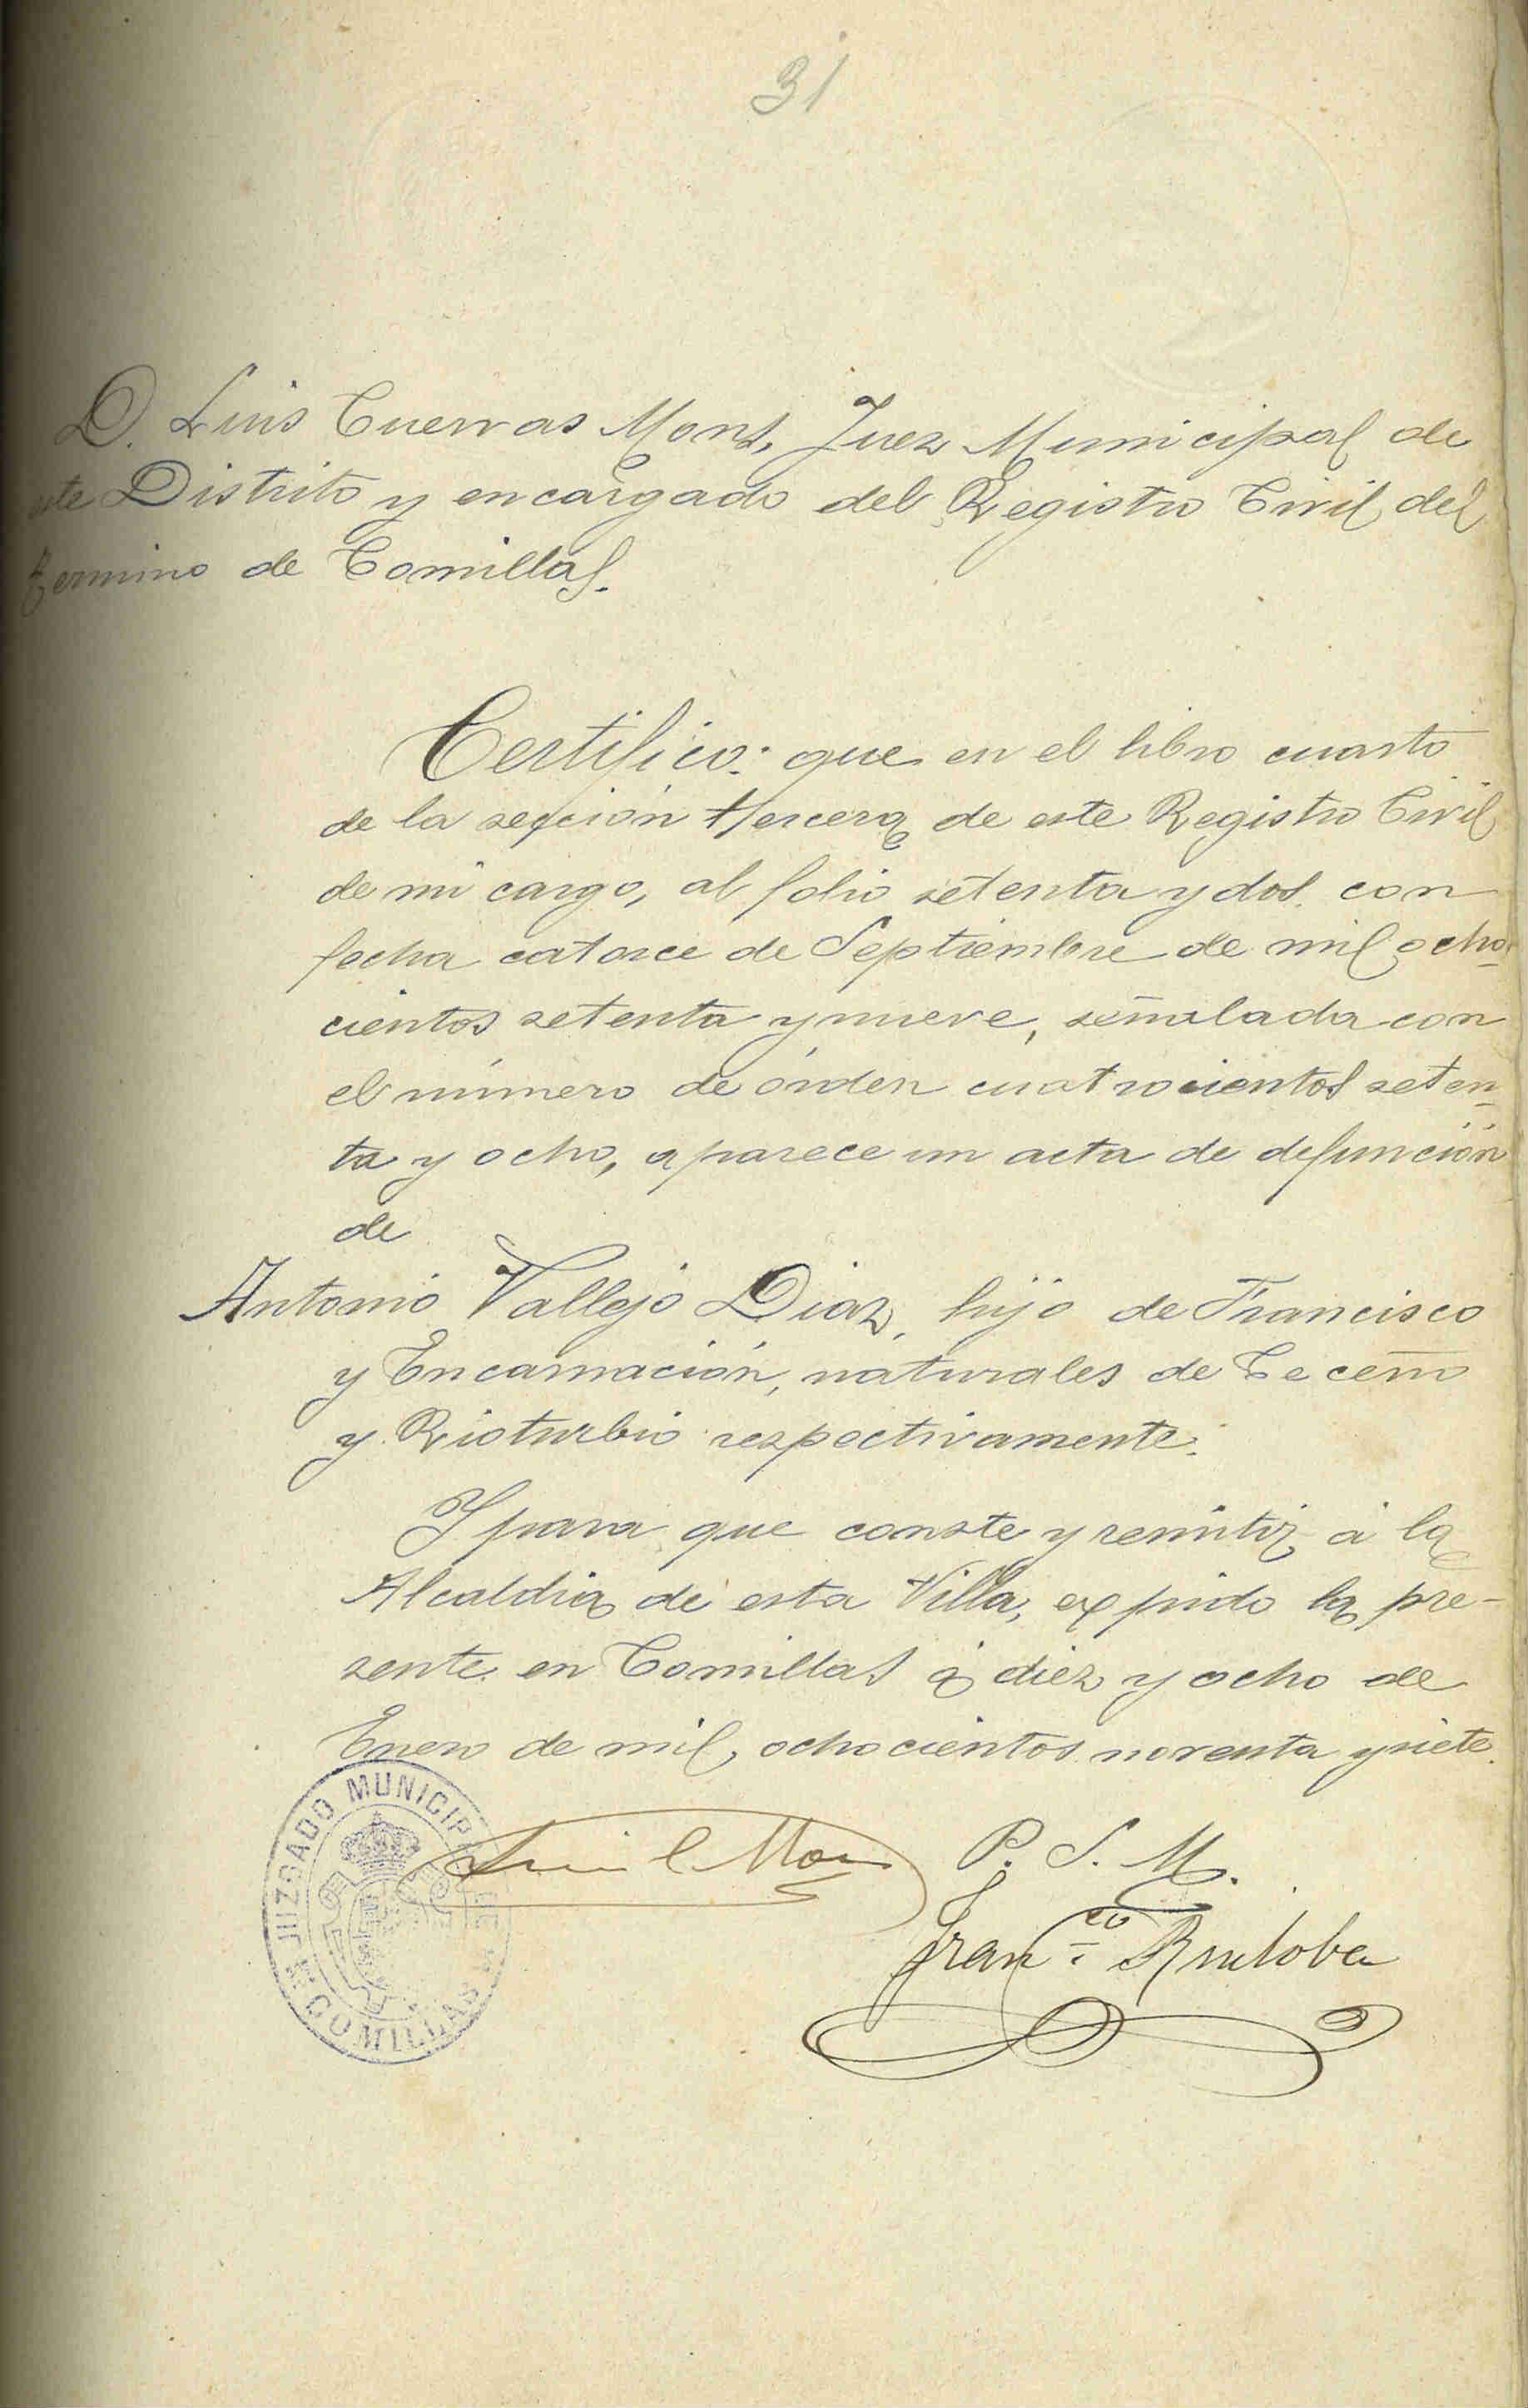 31
D. Luis Cuevas Mons, Juez Municipal de
este Distrito y encargado del Registro Civil del
termino de Comillas.
Certifico: que en el libro cuarto
de la sección tercera de este Registro Civil
de mi cargo, al folio setenta y dos con
fecha catorce de Septiembre de mil ocho-
cientos setenta y nueve, señalada con
el número de órden cuatrocientos seten-
ta y ocho, aparece un acta de defunción
de
Antonio Vallejo Diaz, hijo de Francisco
y Encarnación, naturales de Ceceño
y Rioturbio respectivamente.
Y para que conste y remitir á la
Alcaldia de esta Villa, expido la pre-
sente en Comillas á diez y ocho de
Enero de mil, ochocientos noventa y siete.
JUZGADO MUNICIPAL DE COMILLAS
Luis C Mons
P. S. M.
Franco Ruiloba